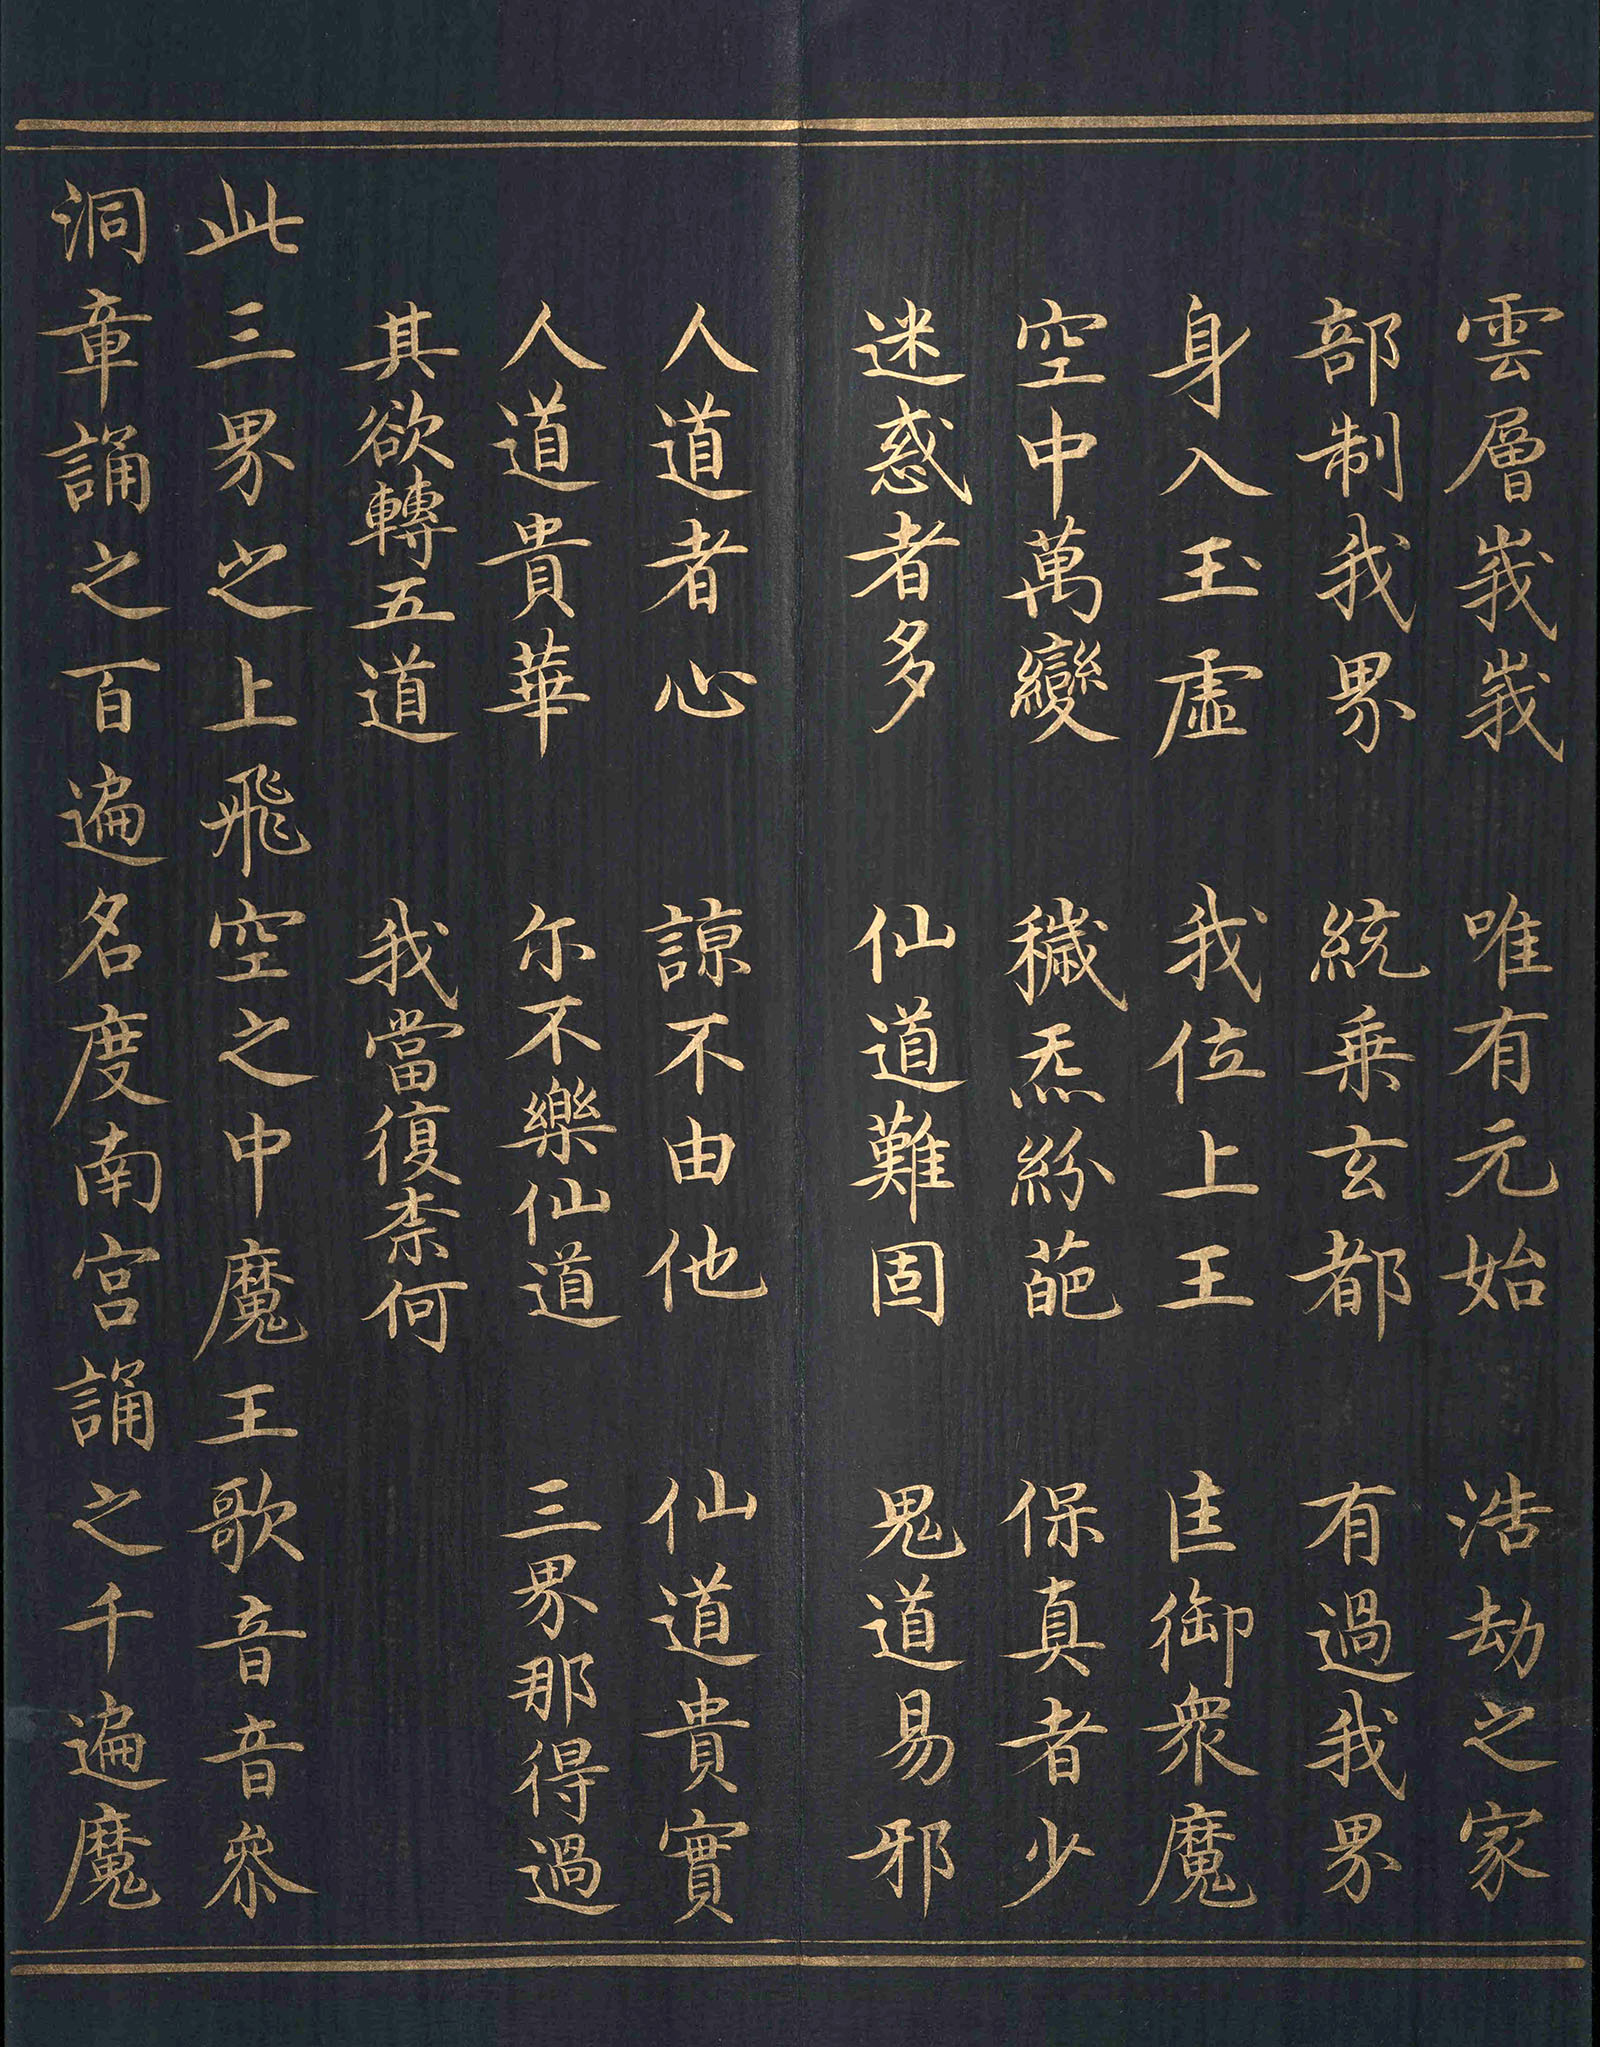 雲層峩峩 唯有元始 浩劫之家
部制我界 統乗玄都 有過我界
身入玉虛 我位上王 匡御衆魔
空中萬變 穢炁紛葩 保真者少
迷惑者多 仙道難固 鬼道易邪
人道者心 諒不由他 仙道貴實
人道貴華 尓不樂仙道 三界那得過
其欲轉五道 我當復柰何
此三界之上飛空之中魔王歌音音叅
洞章誦之百遍名度南宫誦之千遍魔